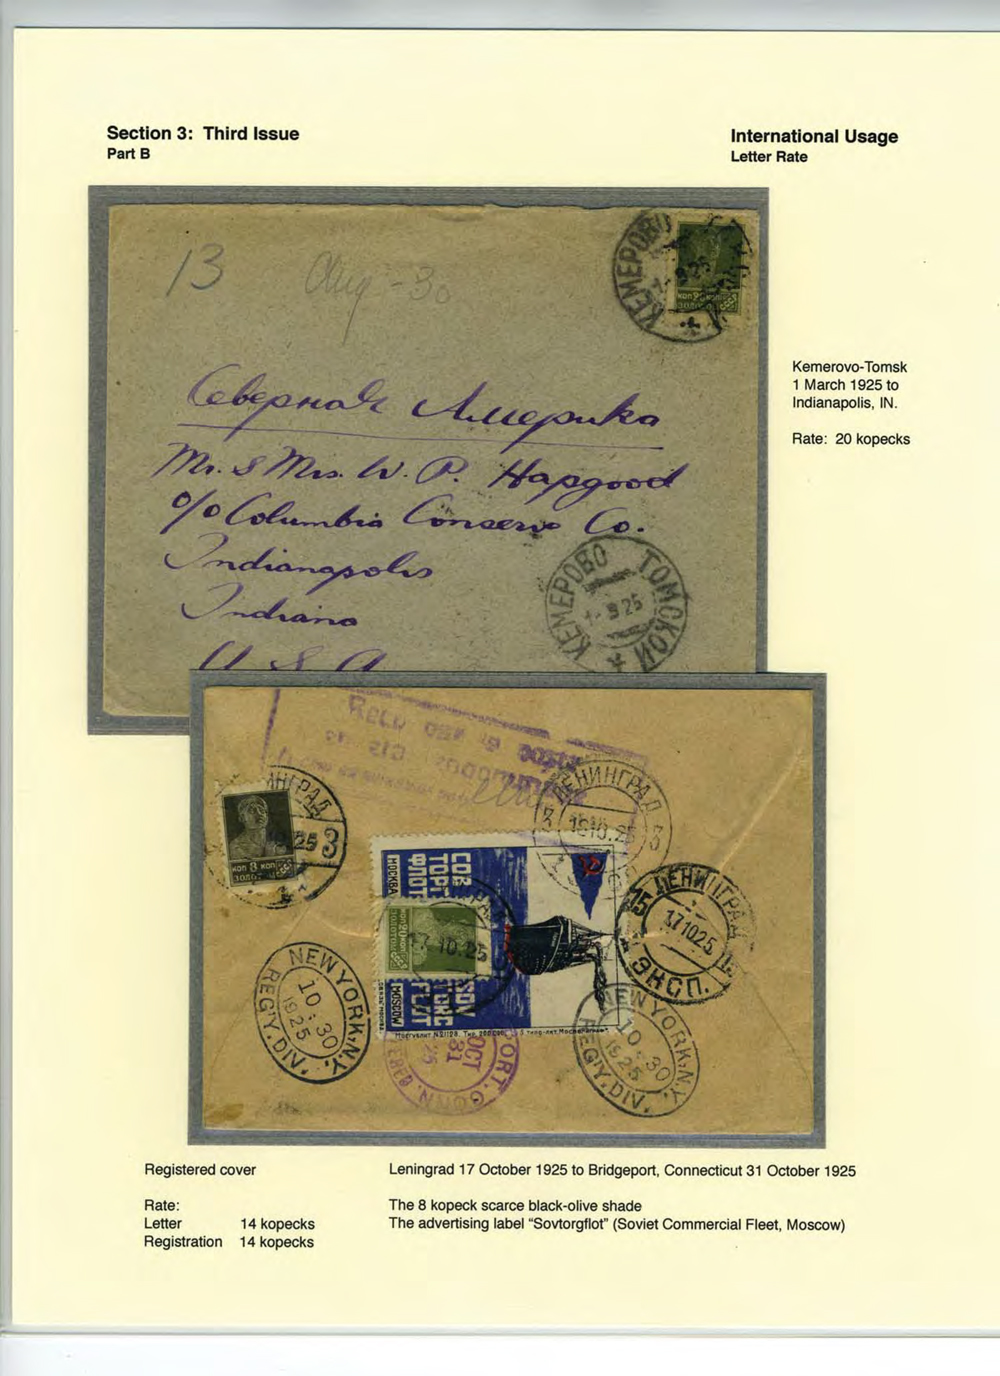 Section 3: Third Issue
Part B
International Usage
Letter Rate
13 Aug - 30
КЕМЕРОВО
Северная Америка
Mr. & Mrs. W. P. Hapgood
c/o Columbia Conserve Co.
Indianapolis
Indiana
U S A
КЕМЕРОВО ТОМСКОЙ
9 25
Kemerovo-Tomsk
1 March 1925 to
Indianapolis, IN.
Rate: 20 kopecks
ЛЕНИНГРАД
3
КОП 8 КОП
ЛЕНИНГРАД
3 3
СОВ
ТОРГ
ФЛОТ
МОСКВА
17-10.25
MOSCOW
ЛЕНИНГРАД
15 15
171025
ЭКСП.
NEW YORK, N.Y.
10:30
1925
REG'Y. DIV.
PORT. CONN.
OCT
31
25
NEW YORK, N.Y.
10:30
1925
REG'Y. DIV.
Registered cover
Leningrad 17 October 1925 to Bridgeport, Connecticut 31 October 1925
Rate:
Letter 14 kopecks
Registration 14 kopecks
The 8 kopeck scarce black-olive shade
The advertising label "Sovtorgflot" (Soviet Commercial Fleet, Moscow)